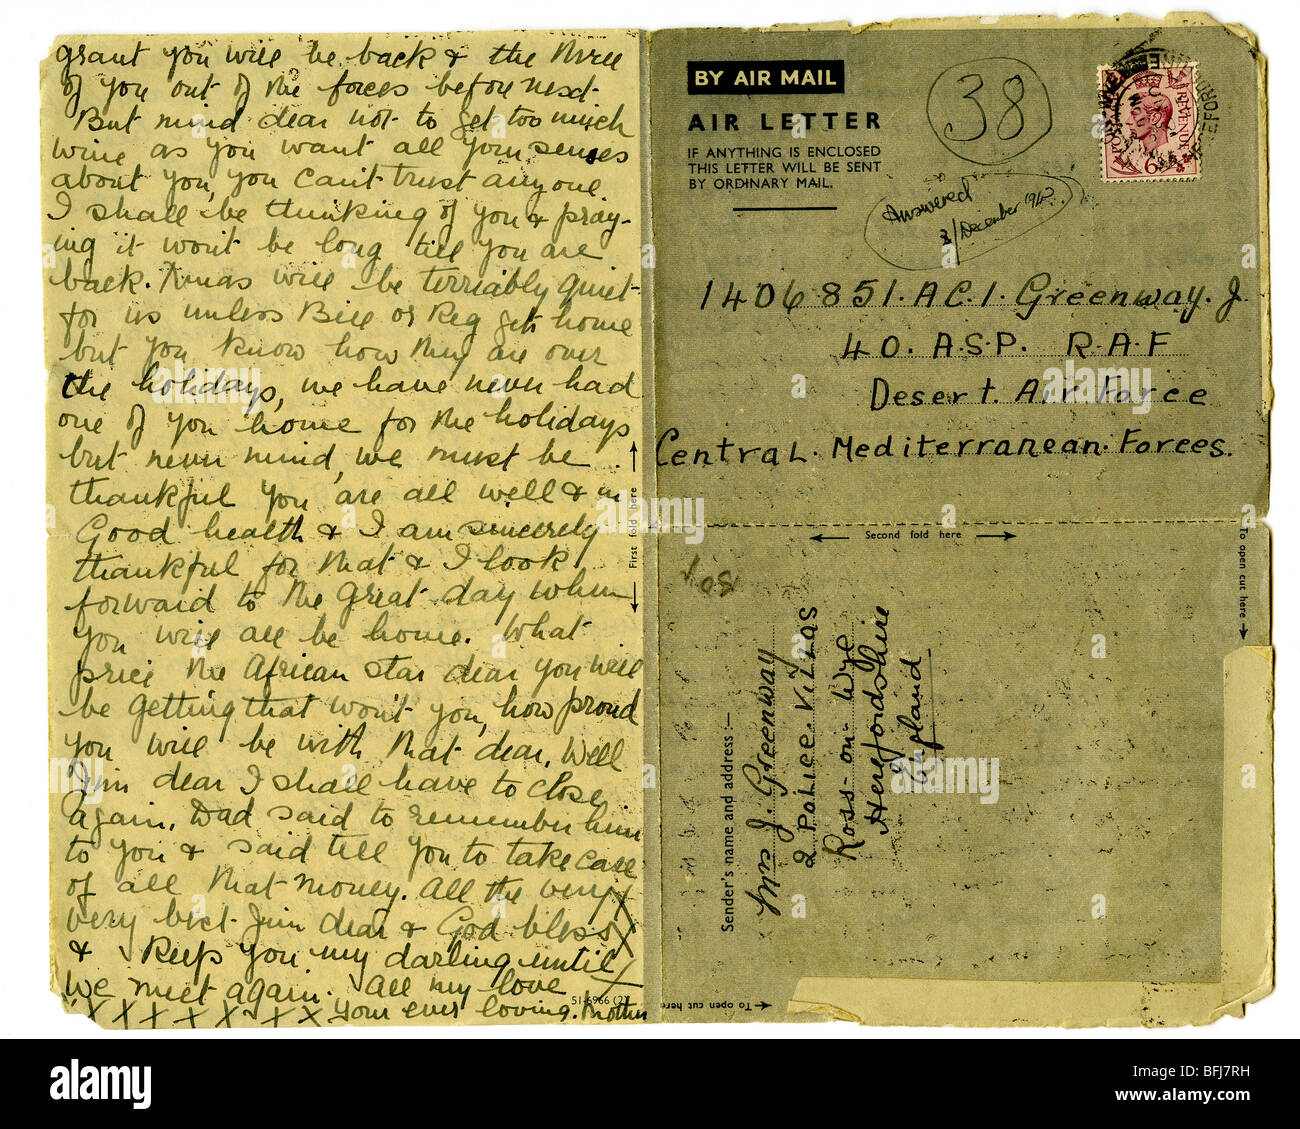 grant you will be back & the three
of you out of the forces before next
But mind dear not to get too much
wine as you want all your senses
about you, you can't trust anyone
I shall be thinking of you & pray-
ing it won't be long till you are
back. Xmas will be terribly quiet
for us unless Bill or Reg gets home
but you know how they are over
the holidays, we have never had
one of you home for the holidays
but never mind, we must be
thankful you are all well & in
Good health & I am sincerely
thankful for that & I look
forward to the great day when
you will all be home. What
price the African Star dear you will
be getting that won't you, how proud
you will be with that dear. Well
Jim dear I shall have to close
again. Dad said to remember him
to you & said tell you to take care
of all that money. All the very
very best Jim dear & God bless
& keep you my darling until
we meet again. All my love
X X X X X X X X Your ever loving. Mother
51-6966 (2)
First fold here
BY AIR MAIL
AIR LETTER
IF ANYTHING IS ENCLOSED
THIS LETTER WILL BE SENT
BY ORDINARY MAIL.
38
Answered
December
POSTAGE REVENUE
6D
HEREFORDSHIRE
1406851. A.C.1. Greenway. J.
40. A.S.P. R.A.F
Desert. Air Force
Central. Mediterranean. Forces.
Second fold here
To open cut here
Sender's name and address :—
Mrs J. Greenway
2 Police Villas
Ross-on-Wye
Herefordshire
England
To open cut here
alamy
Image ID: BFJ7RH
www.alamy.com